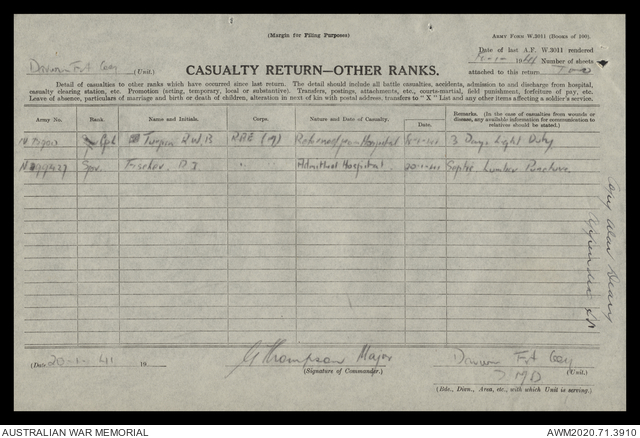 (Margin for Filing Purposes)
ARMY FORM W.3011 (BOOKS OF 100).
Date of last A.F. W.3011 rendered
1941 Number of sheets
attached to this return Two
Darwin Frt Coy (Unit.)
CASUALTY RETURN—OTHER RANKS.
Detail of casualties to other ranks which have occurred since last return. The detail should include all battle casualties, accidents, admission to and discharge from hospital, casualty clearing station, etc. Promotion (acting, temporary, local or substantive). Transfers, postings, attachments, etc., courts-martial, field punishment, forfeiture of pay, etc. Leave of absence, particulars of marriage and birth or death of children, alteration in next of kin with postal address, transfers to "X" List and any other items affecting a soldier's service.
Army No. Rank. Name and Initials. Corps. Nature and Date of Casualty. Date. Remarks. (In the case of casualties from wounds or disease, any available information for communication to relations should be stated.)
Cpl R.W.B. RAE (M) Returned from Hospital 3 Days Light Duty
Spr. Fischer. D J " Admitted Hospital. 20-1-41 Septic Lumbar Puncture.
Copy Alan Deary
Appendix
(Date 20-1-41 19
G Thompson Major
(Signature of Commander.)
Darwin Frt Coy
7 MD (Unit.)
(Bde., Divn., Area, etc., with which Unit is serving.)
AUSTRALIAN WAR MEMORIAL
AWM2020.71.3910